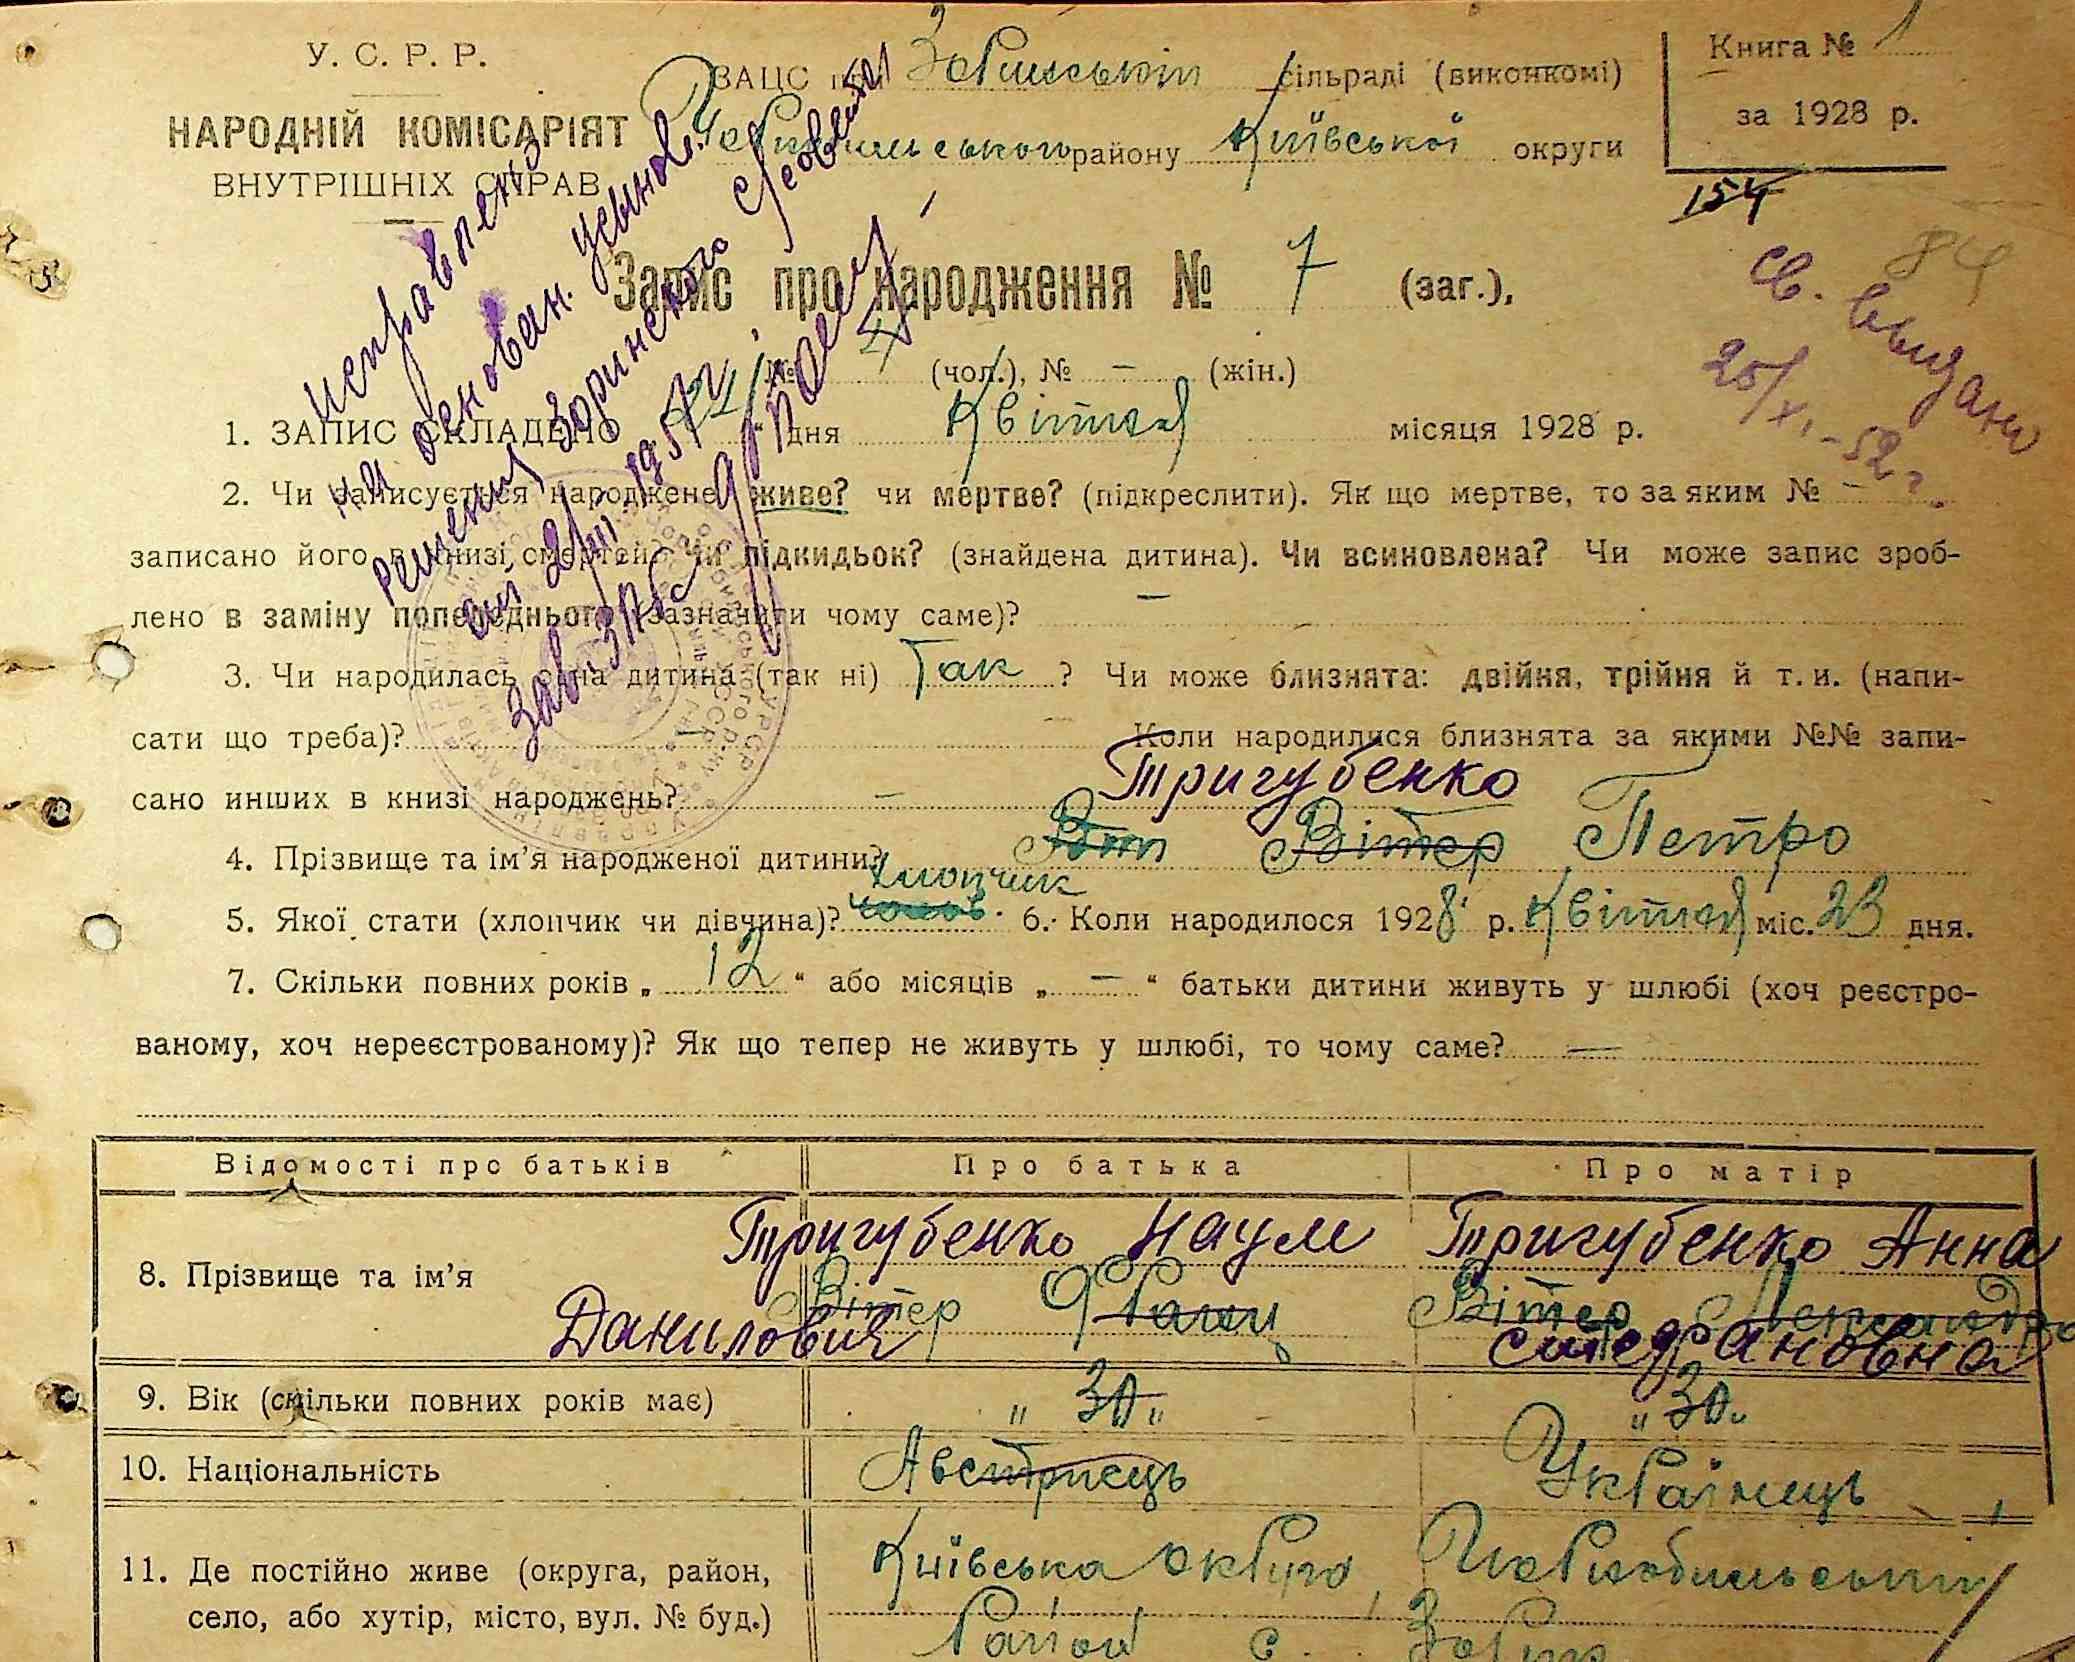 У. С. Р. Р.
НАРОДНІЙ КОМІСАРІЯТ
ВНУТРІШНІХ СПРАВ
ЗАЦС при Зоринській сільраді (виконкомі)
Чорнобильського району Київської округи
Книга № 1
за 1928 р.
154
84
Св. выдано
25/XI-52 г.
Исправлено
на основан. усыновл.
решения Зоринского с/совета
Зав. ЗАГС
Запис про народження № 7 (заг.),
№ 4 (чол.), № – (жін.)
1. ЗАПИС СКЛАДЕНО дня Квітня місяця 1928 р.
2. Чи записується народжене живе? чи мертве? (підкреслити). Як що мертве, то за яким № –
записано його в книзі смертей? Чи підкидьок? (знайдена дитина). Чи всиновлена? Чи може запис зроб-
лено в заміну попереднього (зазначити чому саме)? –
3. Чи народилась одна дитина (так ні) Так ? Чи може близнята: двійня, трійня й т. и. (напи-
сати що треба)? – Коли народилися близнята за якими №№ запи-
сано инших в книзі народжень? –
Тригубенко
4. Прізвище та ім’я народженої дитини? Вітер Петро
хлопчик
5. Якої стати (хлопчик чи дівчина)? 6. Коли народилося 1928 р. Квітня міс. 23 дня.
7. Скільки повних років „ 12 “ або місяців „ – “ батьки дитини живуть у шлюбі (хоч реєстро-
ваному, хоч нереєстрованому)? Як що тепер не живуть у шлюбі, то чому саме? —
Відомості про батьків Про батька Про матір
Тригубенко Наум Тригубенко Анна
8. Прізвище та ім’я Вітер Франц Вітер Лександра
Данилович Стефановна
9. Вік (скільки повних років має) „ 30 „ „ 30 „
10. Національність Австриєць Українець
11. Де постійно живе (округа, район, Київська округа, Чорнобильський
село, або хутір, місто, вул. № буд.) Район с.